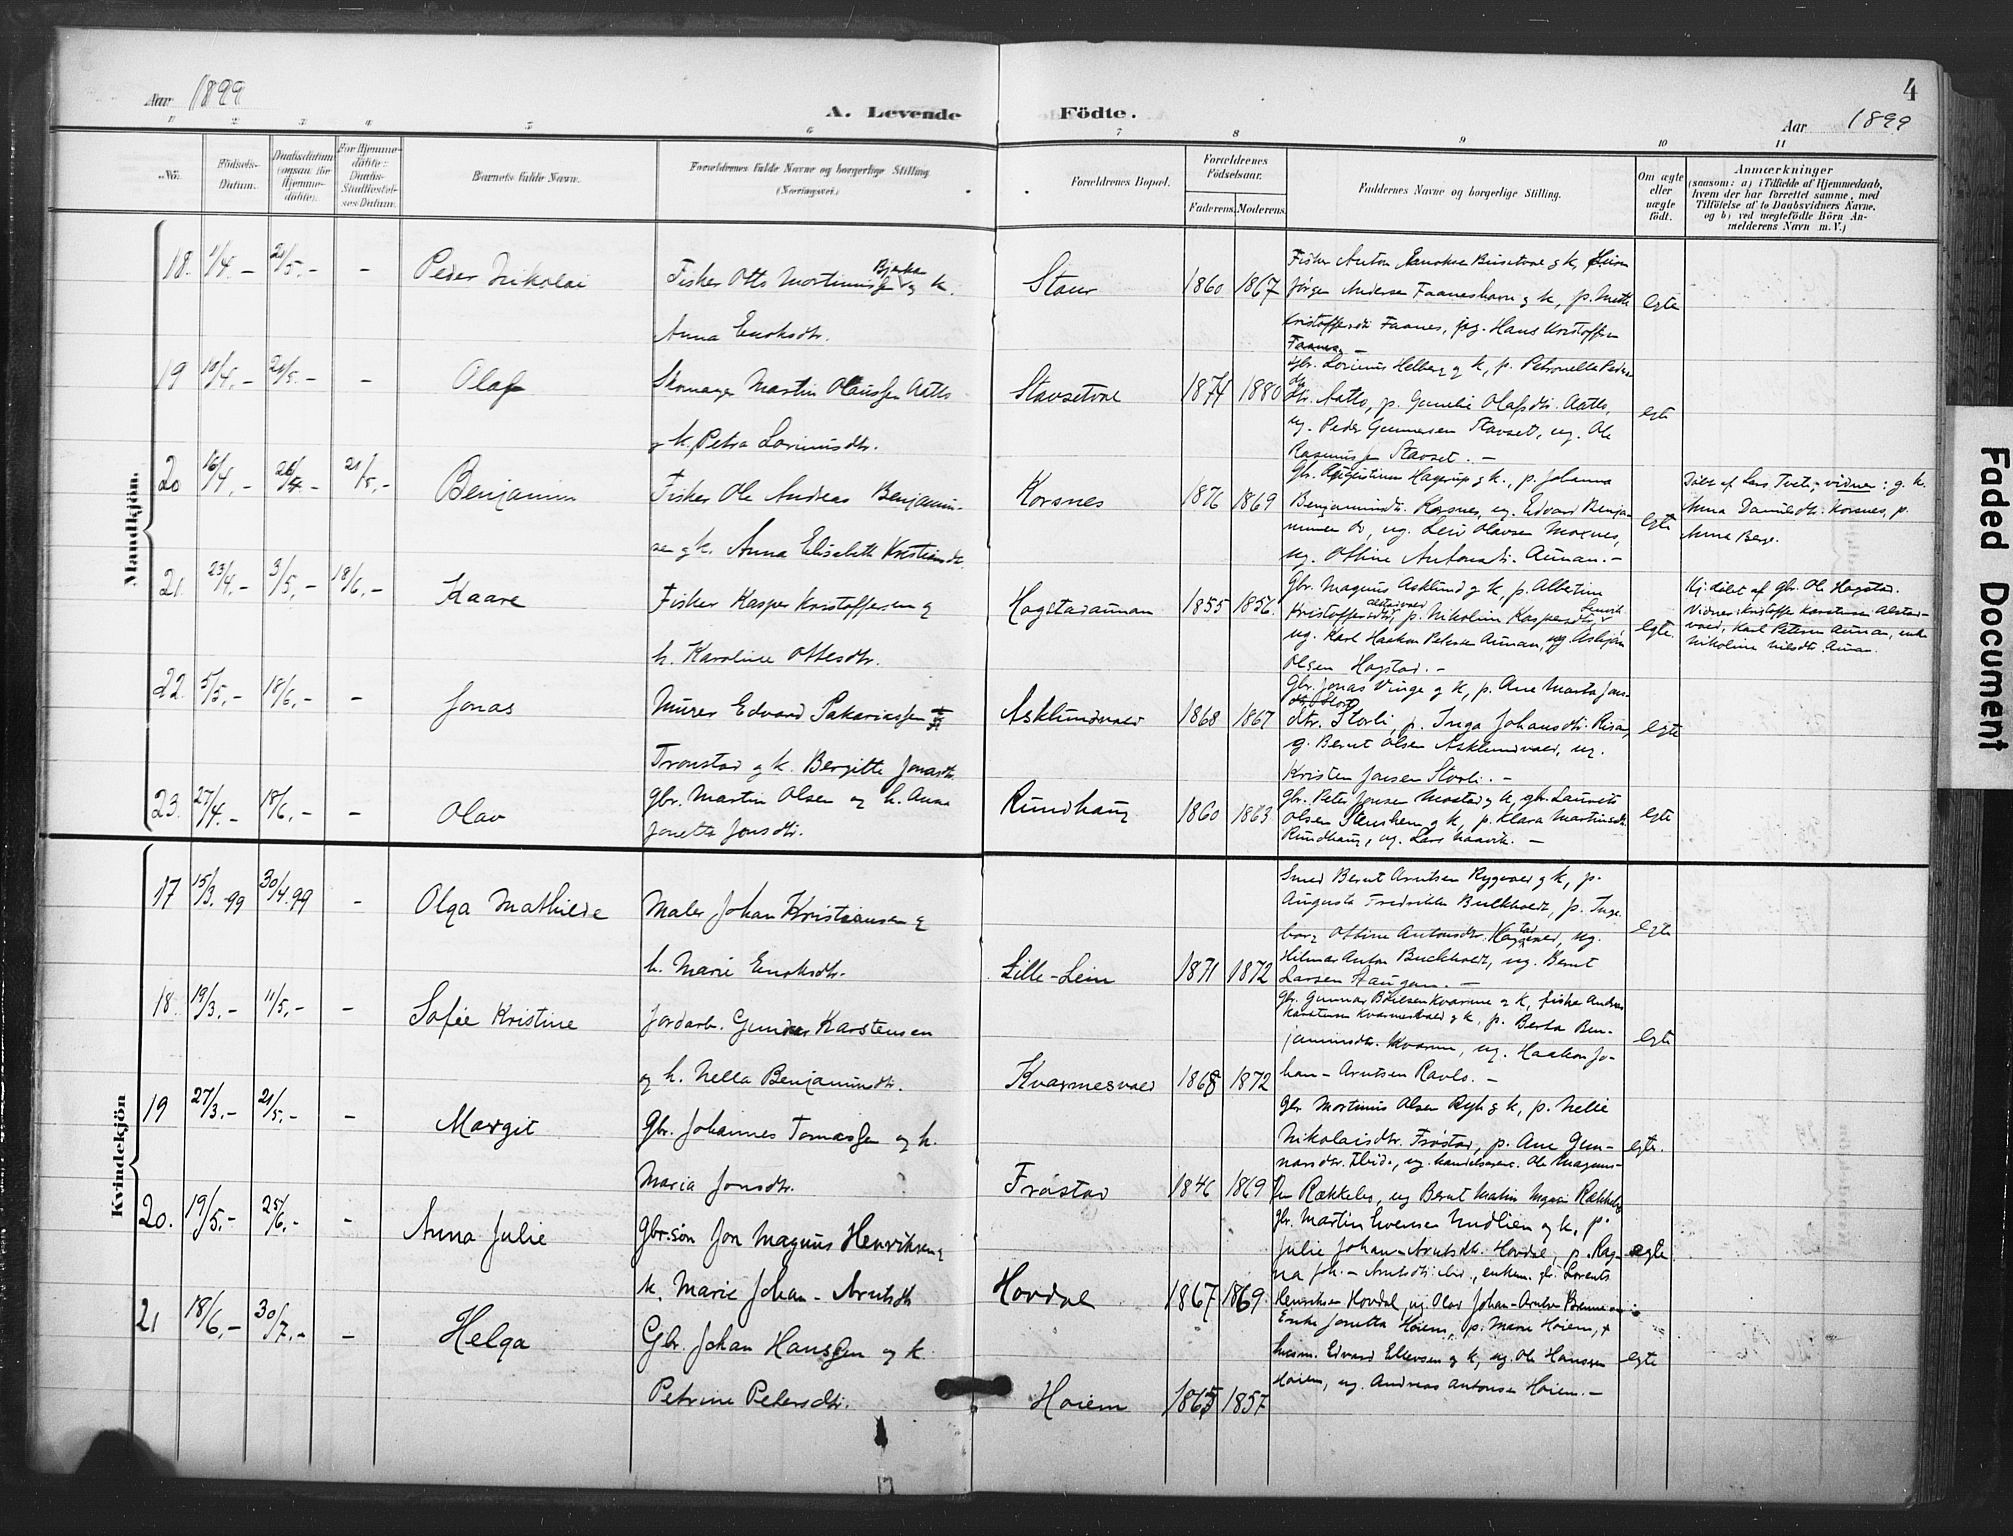 Aar 1899
A. Levende Födte.
4
Aar 1899
1 2 3 4 5 6 7 8 9 10 11
No.
Födsels-
Datum.
Daabsdatum
(ogsaa for
Hjemme-
döbte).
For Hjemme-
döbte:
Daabs-
Stadfæstel-
ses-Datum.
Barnets fulde Navn.
Forældrenes fulde Navne og borgerlige Stilling
(Næringsvei)
Forældrenes Bopæl.
Forældrenes
Födselsaar.
Faderens. Moderens.
Faddernes Navne og borgerlige Stilling.
Om ægte
eller
uægte
födt.
Anmærkninger
(saasom: a) i Tilfælde af Hjemmedaab,
hvem der har forrettet samme, med
Tilföielse af to Daabsvidners Navne.
og b) ved uægtefödte Börn An-
melderens Navn m. V.)
Mandkjön.
18. 1/4.- 21/5.- - Peder Nikolai
Fisker Otto Mortinussen Bjerkan og k.
Anna Enoksdtr.
Staur 1860 1867
Jörgen Andersen Faaneshavn g k, p. Mette
Kristoffersdtr Faanes, Hans Kristoffersen
Faanes. -
egte
19 10/4.- 21/5.- - Olaf
Skomager Martin Olaussen Aatlo
g k. Petra Lorinusdtr.
Stavsetval 1874 1880
Gbr. Lorinus Helberg g k, p. Petronelle Peders
dtr. Aatlo, p. Gunelie Olafsdtr. Aatlo,
ug. Peder Gunnersen Stavset, ug. Ole
Rasmussen Stavset. -
egte
20 16/4.- 21/5.- Benjamin
Fisker Ole Andreas Benjamin-
sen g k. Anna Elisabeth Kristiansdtr.
Korsnes 1876 1869
Gbr. Augustinus Hagerup g k., p. Johanna
Benjaminsdtr. Korsnes, ug. Edvard Benja-
minsen do, ug. Leiv Olavsen Moxnes,
ug. Ottine Antonsdtr. Aunan. -
egte
Döbt af Lars Tvete, vidner: g. k.
Anna Danielsdtr. Korsnes, p.
Anna Berg.
21. 23/4.- 3/5.- 18/6.- Kaare
Fisker Kasper Kristoffersen g
h. Karoline Ottesdtr.
Hogstadaunan 1855 1856.
Gbr. Magnus Asklund g k, p. Albertine
Kristoffersdtr, p. Nikoline Kaspersdtr,
ug. Karl Haakon Petersen Aunan, ug Asbjörn
Olsen Hogstad. -
egte.
Hj. döbt af Gbr. Ole Hogstad.
Vidner: Kristoffer Karstensen Alstad-
vald, Karl Petersen Aunan, enke
Nikoline Nilsdtr. Aunan.
22. 5/5.- 18/6.- - Jonas
Murer Edvard Sakariassen
Tronstad g k. Bergitte Jonasdtr.
Asklundvald 1868 1867
Gbr. Jonas Vinge g k, p. Ane Marta Jons-
dtr. Storli, p. Inga Johansdtr. Risan,
g. Bernt Olsen Asklundvald, ug.
Kristen Jonsen Storli. -
egte
23. 27/4.- 18/6.- - Olav
Gbr. Martin Olsen og h. Anna
Jonetta Jonsdtr.
Rundhaug 1860 1863
Gbr. Peter Jonsen Mostad g k, gbr. Laurits
Olsen Stenshem g k, p. Klara Martinsdtr.
Rundhaug, ug. Lars Naavik. -
egte
Kvindekjön
17 15/3.99 30/4.99 - Olga Mathilde
Maler Johan Kristiansen g
h. Marie Enoksdtr.
Lille-Lein 1871 1872
Smed Bernt Arntsen Rygvald g k, p.
Augusta Fredrikke Buckholdt, p. Inge-
borg Ottine Antonsdtr. ug.
Hilmar Anton Buckholdt, ug. Bernt
Larsen Haugan. -
egte
18. 19/3.- 11/5.- - Sofie Kristine
Jordarb. Gunnar Karstensen
og h. Nella Benjaminsdtr.
Kvarmesvald 1868 1872
Gbr. Gunnar Börresen Kvarme g k, fisker Anders
Karstensen Kvarmesvald g k, p. Berta Ben-
jaminsdtr. Kvarme, ug. Haakon Jo-
han-Arntsen Ravlo. -
egte
19 27/3.- 21/5.- - Margit
Gbr. Johannes Tomassen og h.
Maria Jonsdtr.
Fröstad 1846 1869
Gbr. Mortinus Olsen Ryh g k, p. Nelie
Nikolaisdtr. Fröstad, p. Ane Gun-
narsdtr. ibid., ug. handelsagent. Ole Magnus-
sen Rækkebo, ug Bernt Rækkebo
egte.
20. 19/5.- 25/6.- - Anna Julie
Gbr.sön Jon Magnus Henriksen g
k. Marie Johan-Arntsdtr.
Hovdal 1867 1869.
Gbr. Martin Svensen Undlien g k, p.
Julie Johan-Arntsdtr. Hovdal, p. Rag-
na Joh.-Arntsdtr. ibid., enkem. gbr. Lorents
Henriksen Hovdal, ug. Olav Johan-Arntsen
egte
21 18/6.- 30/7.- - Helga
Gbr. Johan Hanssen og k.
Petrine Petersdtr.
Höiem 1865 1857
Enke Jonetta Höiem, p. Marie Höiem,
husm. Edvard Ellevsen g k, ug. Ole Hanssen
Höiem, ug. Andreas Antonsen Höiem. -
egte
Faded Document